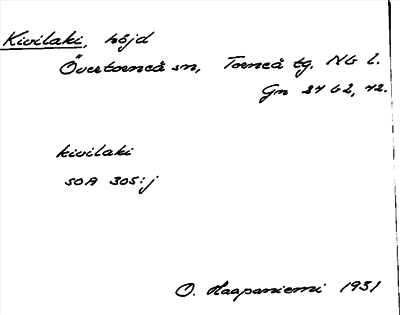 Kivilaki, höjd
Övertorneå sn, Torneå tg. Nb l.
Gn 27 G2, H2.
kivilaki
SOA 305:j
O. Haapaniemi 1931